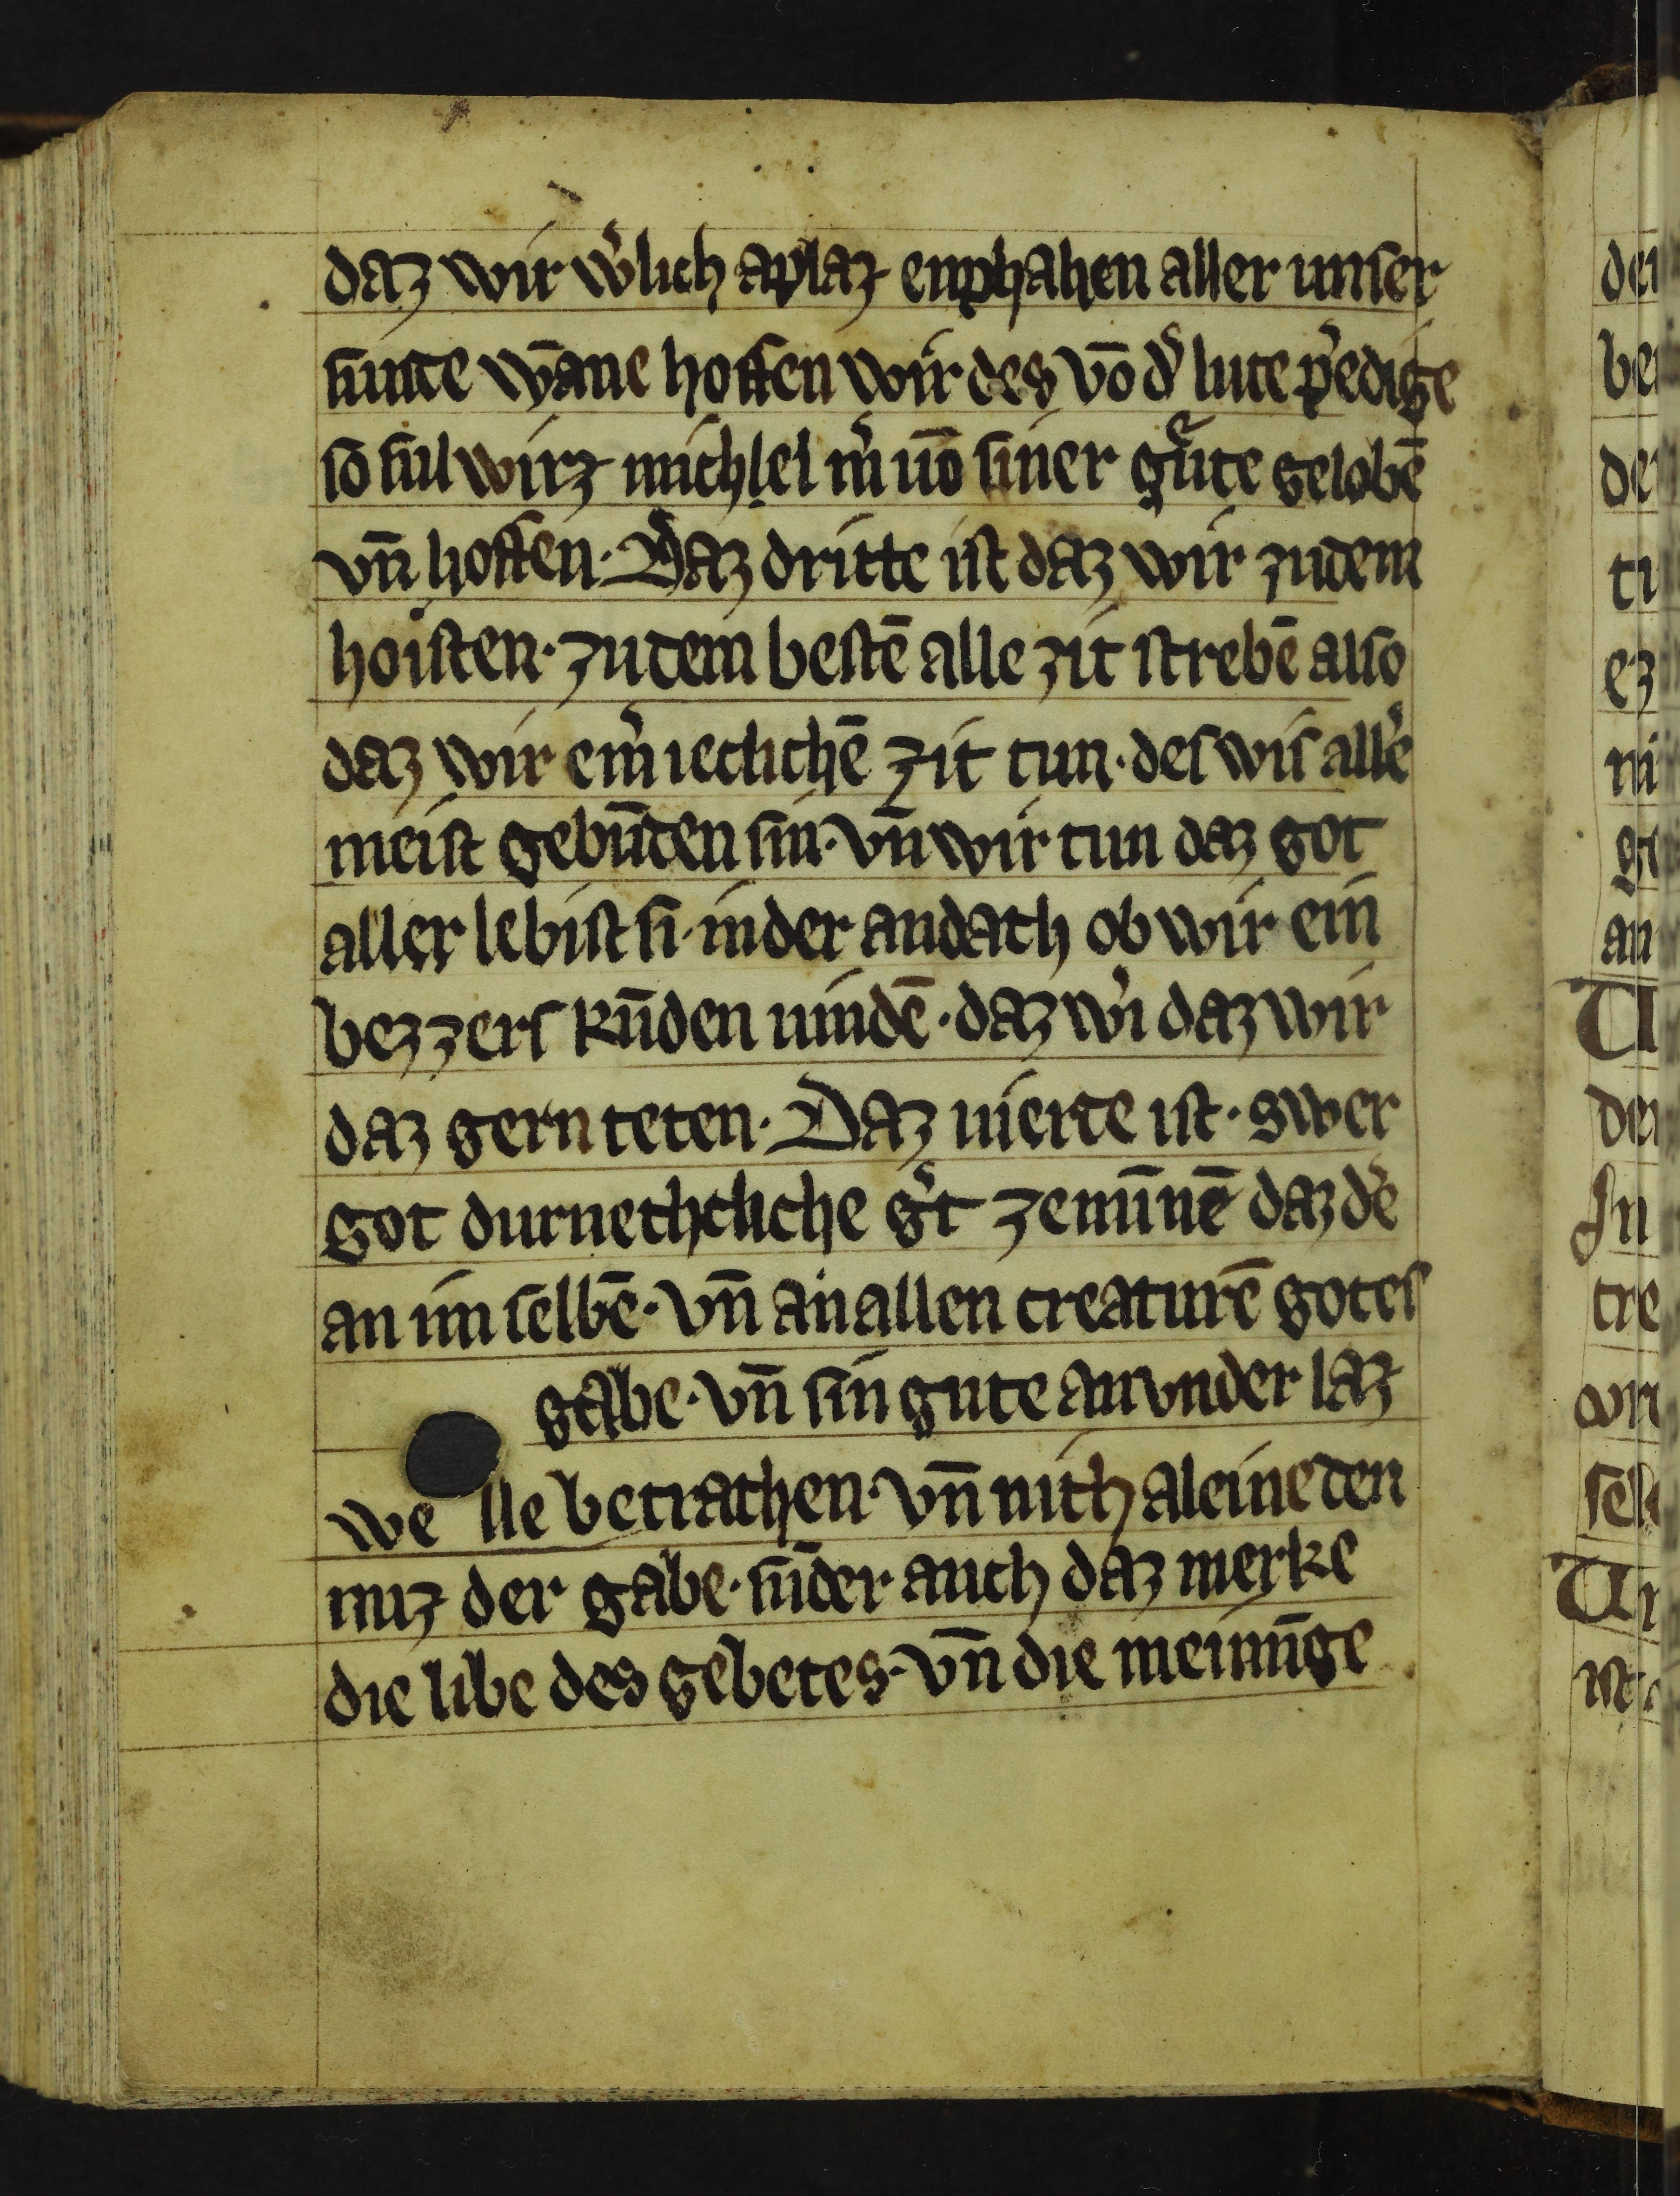 daz wir w͛lich aplaz enphahen aller unser
sunte wāne hoffen wir des vō d͛ lute p͛edige
so sul wirz michſel m͛ uō siner gute gelobē
vn̄ hoffen · Daz dritte ist daz wir zudem
hoisten · zu dem bestē alle zit strebē also
daz wir em͛ ieclichē zit tun · des wis all͛e
meist gebūden sin · vn̄ wir tun daz got
aller lebist si · in der andath ob wir ein
bezzers kūden uindē · daz w͛i daz wir
daz gern teten · Daz uierte ist · swer
got durnethcliche g͛t ze mīnē daz d͛e
an im selbē · vn̄ an allen creaturē gotes
gabe · vn̄ sin gute an under laz
we lle betrathen · vn̄ nith aleine den
nuz der gabe · sūder auch daz merke
die libe des gebetes · vn̄ die meinūge